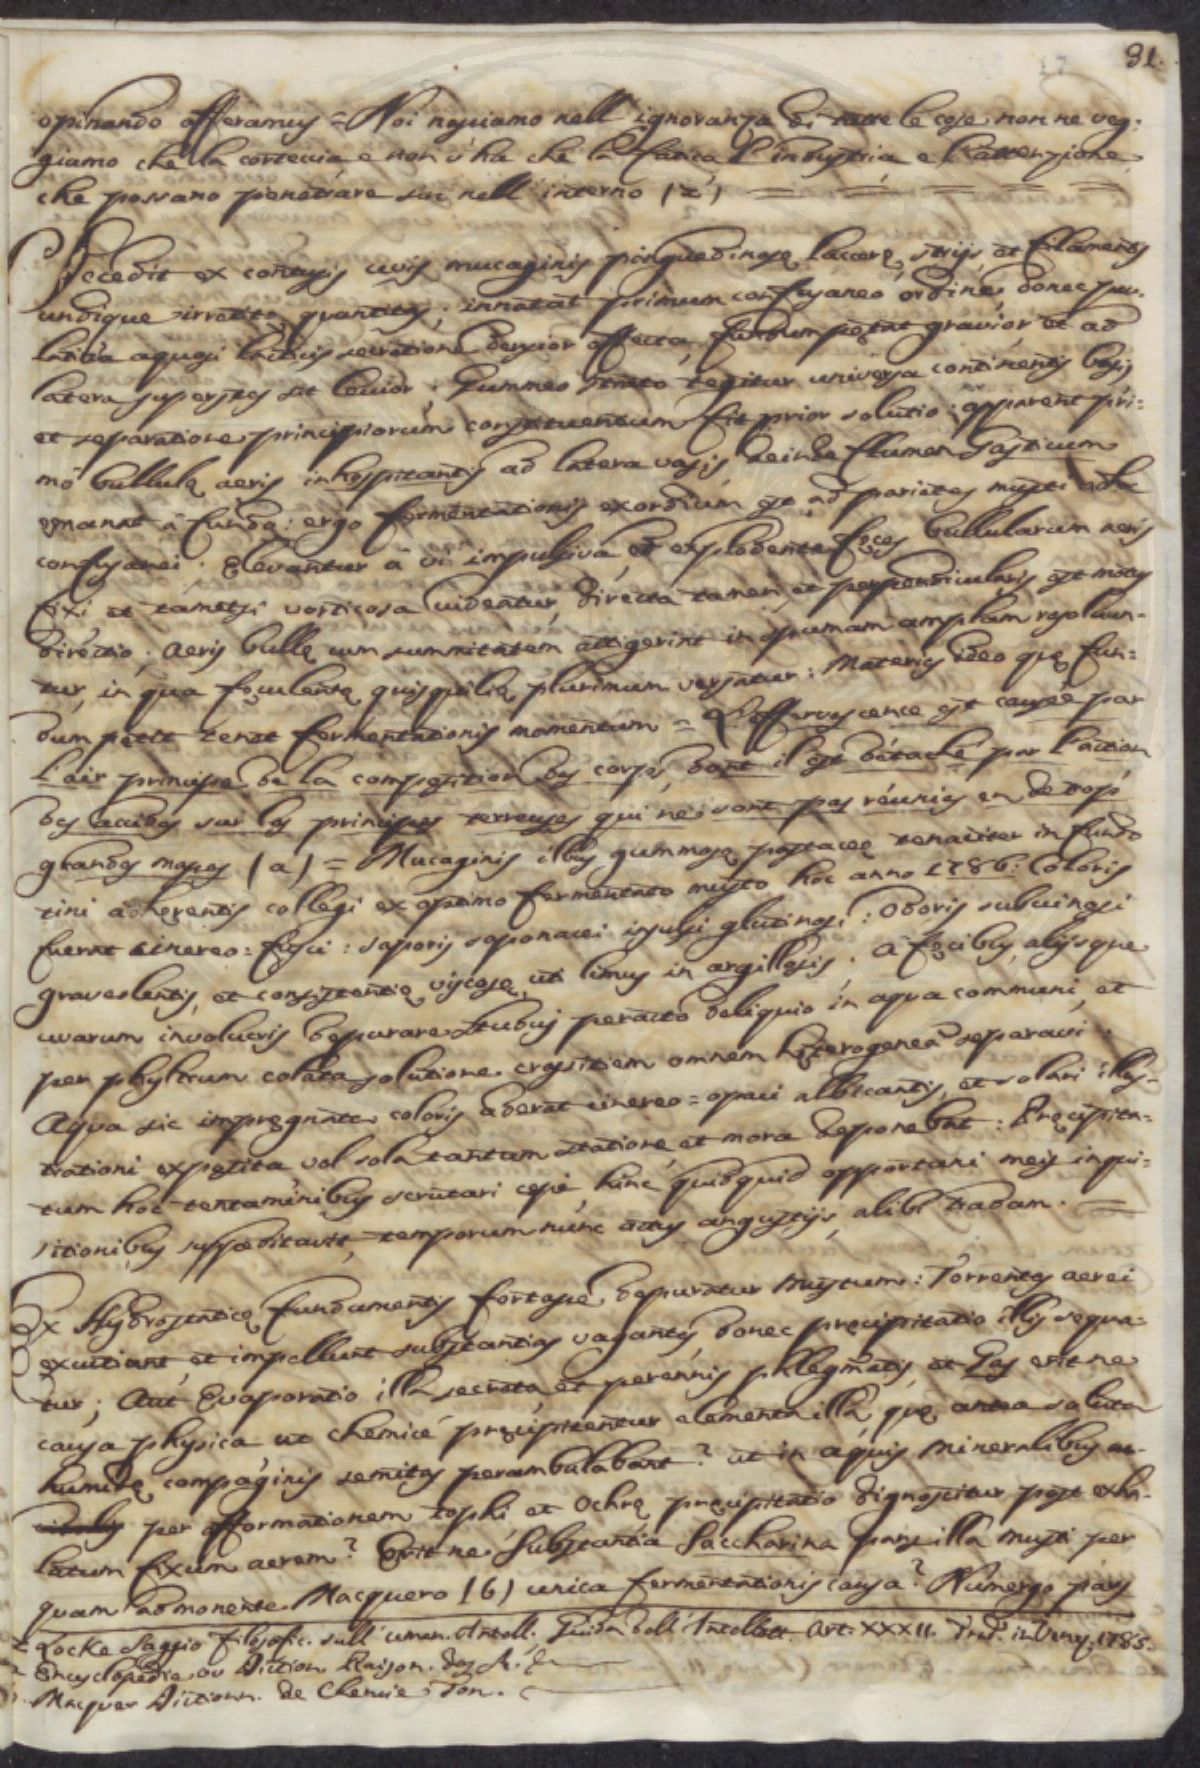 81.
opinando afferamus = Noi nasciamo nell' ignoranza di tutte le cose non ne veg-
giamo che la corteccia e non v'ha che la fatica l'industria e l'attenzione
che possano penetrare sin nell' interno (z)
Secedit ex contusis uvis mucaginis pinguedinosę lacerę, strijs, et filamentis
undique irretitę quantitas; innatat primum confusaneo ordine, donec pau-
latim aquosi laticis secretione densior effecta fundum petat gravior et ad
latera superstes sit levior; Gummeo strato tegitur universa continentis basis
et separatione principiorum constituentium fit prior solutio: apparent pri-
mò bullulę aeris inhospitantis ad latera vasis, deinde flumen Gasticum
emanant à fundo: ergo fermentationis exordium est ad parietes musti adhuc
confusanei. Elevantur à vi impulsiva, et explodente fęces bullularum aeris
fixi et tametsi vorticosa videntur, directa tamen, et perpendicularis est motus
directio; aeris bullę cum summitatem attigerint in spumam amplam resolvun-
tur, in qua fęculentę quisquilię plurimum versatur: Materies ideo quę fun-
dum petit tenet fermentationis momentum = L'effervescence est causée par
l'air principe de la composition des corps, dont il est détaché par l'action
des acides sur les principes terreuses qui ne sont pas réunies en de trop
grandes masses (a) = Mucaginis illius gummosę postaceę tenaciter in fundo
tini adhęrentis collegi ex optimo fermentato musto hoc anno 1786: Coloris
fuerat cinereo-fusci: saporis saponacei insulsi glutinosi: Odoris subvinosi
graveolentis, et consistentię viscosę, uti limus in argillosis. à fęcibus, alijsque
uvarum involucris depurare studui peracto deliquio in aqua communi, et
per phyltrum colata solutione crassitiem omnem hęterogeneã separavi.
Aqua sic impręgnata coloris aderat cinereo-opaci albicantis, et solari illus-
trationi exposita vel sola tantum statione, et mora deponebat: Pręcipita-
tum hoc tentaminibus scrutari cępi, hinc quidquid opportuni meis inqui-
sitionibus suppeditavit, temporum nunc actus angustijs, alibi tradam.
Ex Hydrostaticę fundamentis fortasse depuratur Mustum: Torrentes aerei
excutiant, et impellunt substantias vagantes, donec pręcipitatio illis sequa-
tur; Aut Evaporatio illa secreta, et perennis phlegmatis, et Gas erit ne
causa physica ut chemicè pręcipitentur elementa illa, quę antea soluta
humidę compaginis semitas perambulabant? ut in aquis Mineralibus
per efformationem tophi et Ochrę pręcipitatio dignoscitur post exha-
latum fixum aerem? Erit ne Substantia Saccharina pars illa musti per
quam admonente Macquero (b) unica fermentationis causa? Num ergo pars
z Locke Saggio Filosofic. sull' uman. Intell. Guida dell' Intellett. Art. XXXII. Trad. in Venez. 1785.
a Encyclopédie, ou Diction. Raison. des A. &
Macquer Dictionn. de Chemie. Tom.